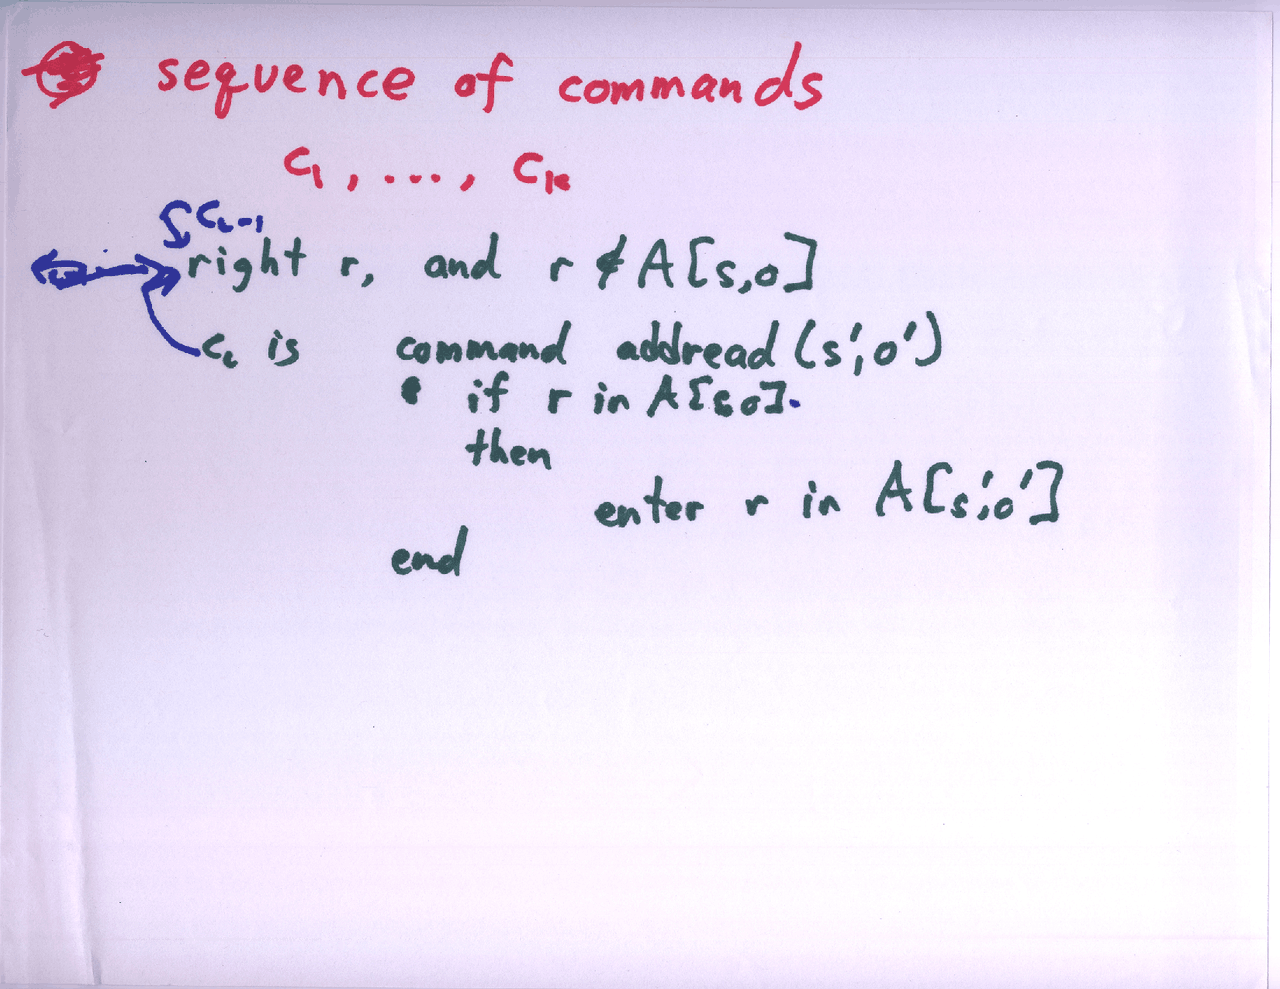 sequence of commands
c₁, ..., cₖ
cᵢ₋₁
right r, and r ∉ A[s,o]
cᵢ is command addread (s', o')
• if r in A[s,o].
then
enter r in A[s', o']
end